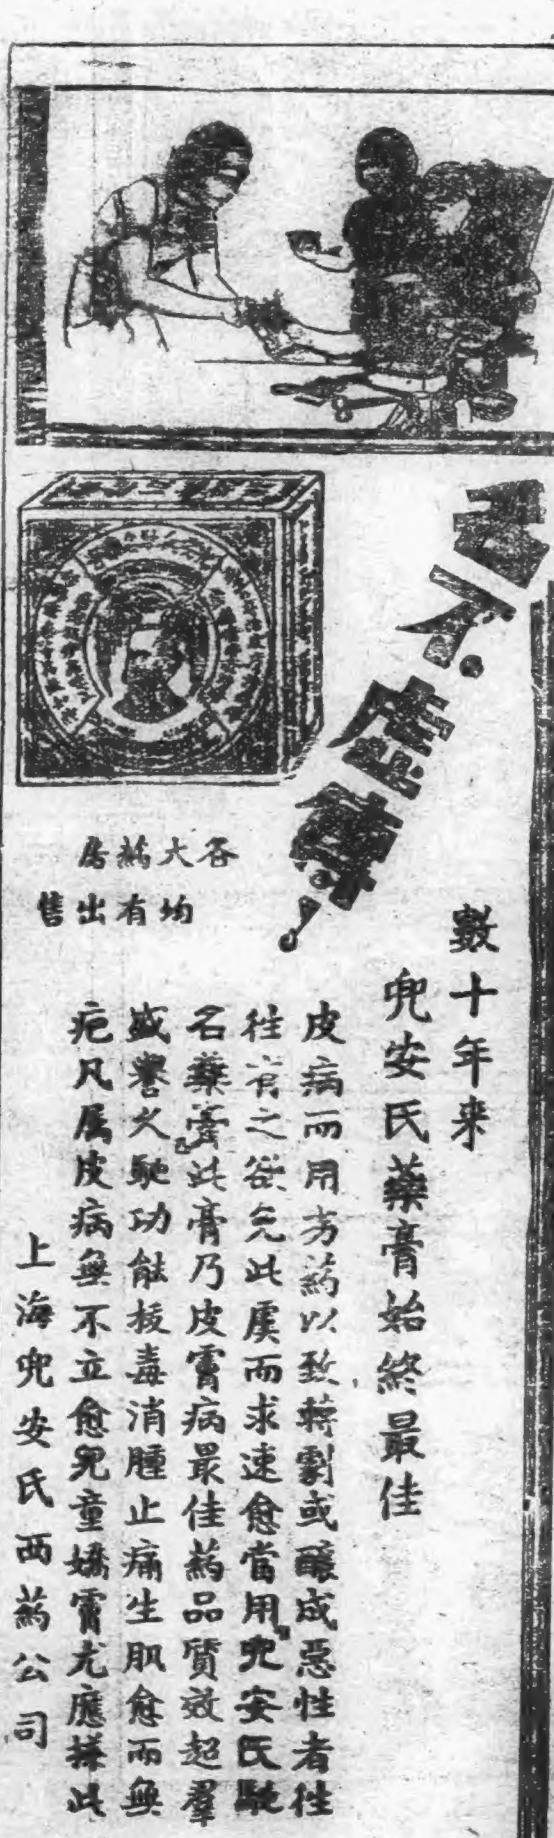 名不虛傳!
數十年来
兜安氏藥膏始終最佳
皮病而用劣葯以致轉劇或釀成惡性者往
往有之欲免此虞而求速愈當用兜安氏馳
名藥膏此膏乃皮膚病最佳葯品質效超羣
盛譽久馳功能拔毒消腫止痛生肌愈而無
疤凡屬皮病無不立愈兒童嬌膚尤應擇此
上海兜安氏西葯公司
各大葯房
均有出售